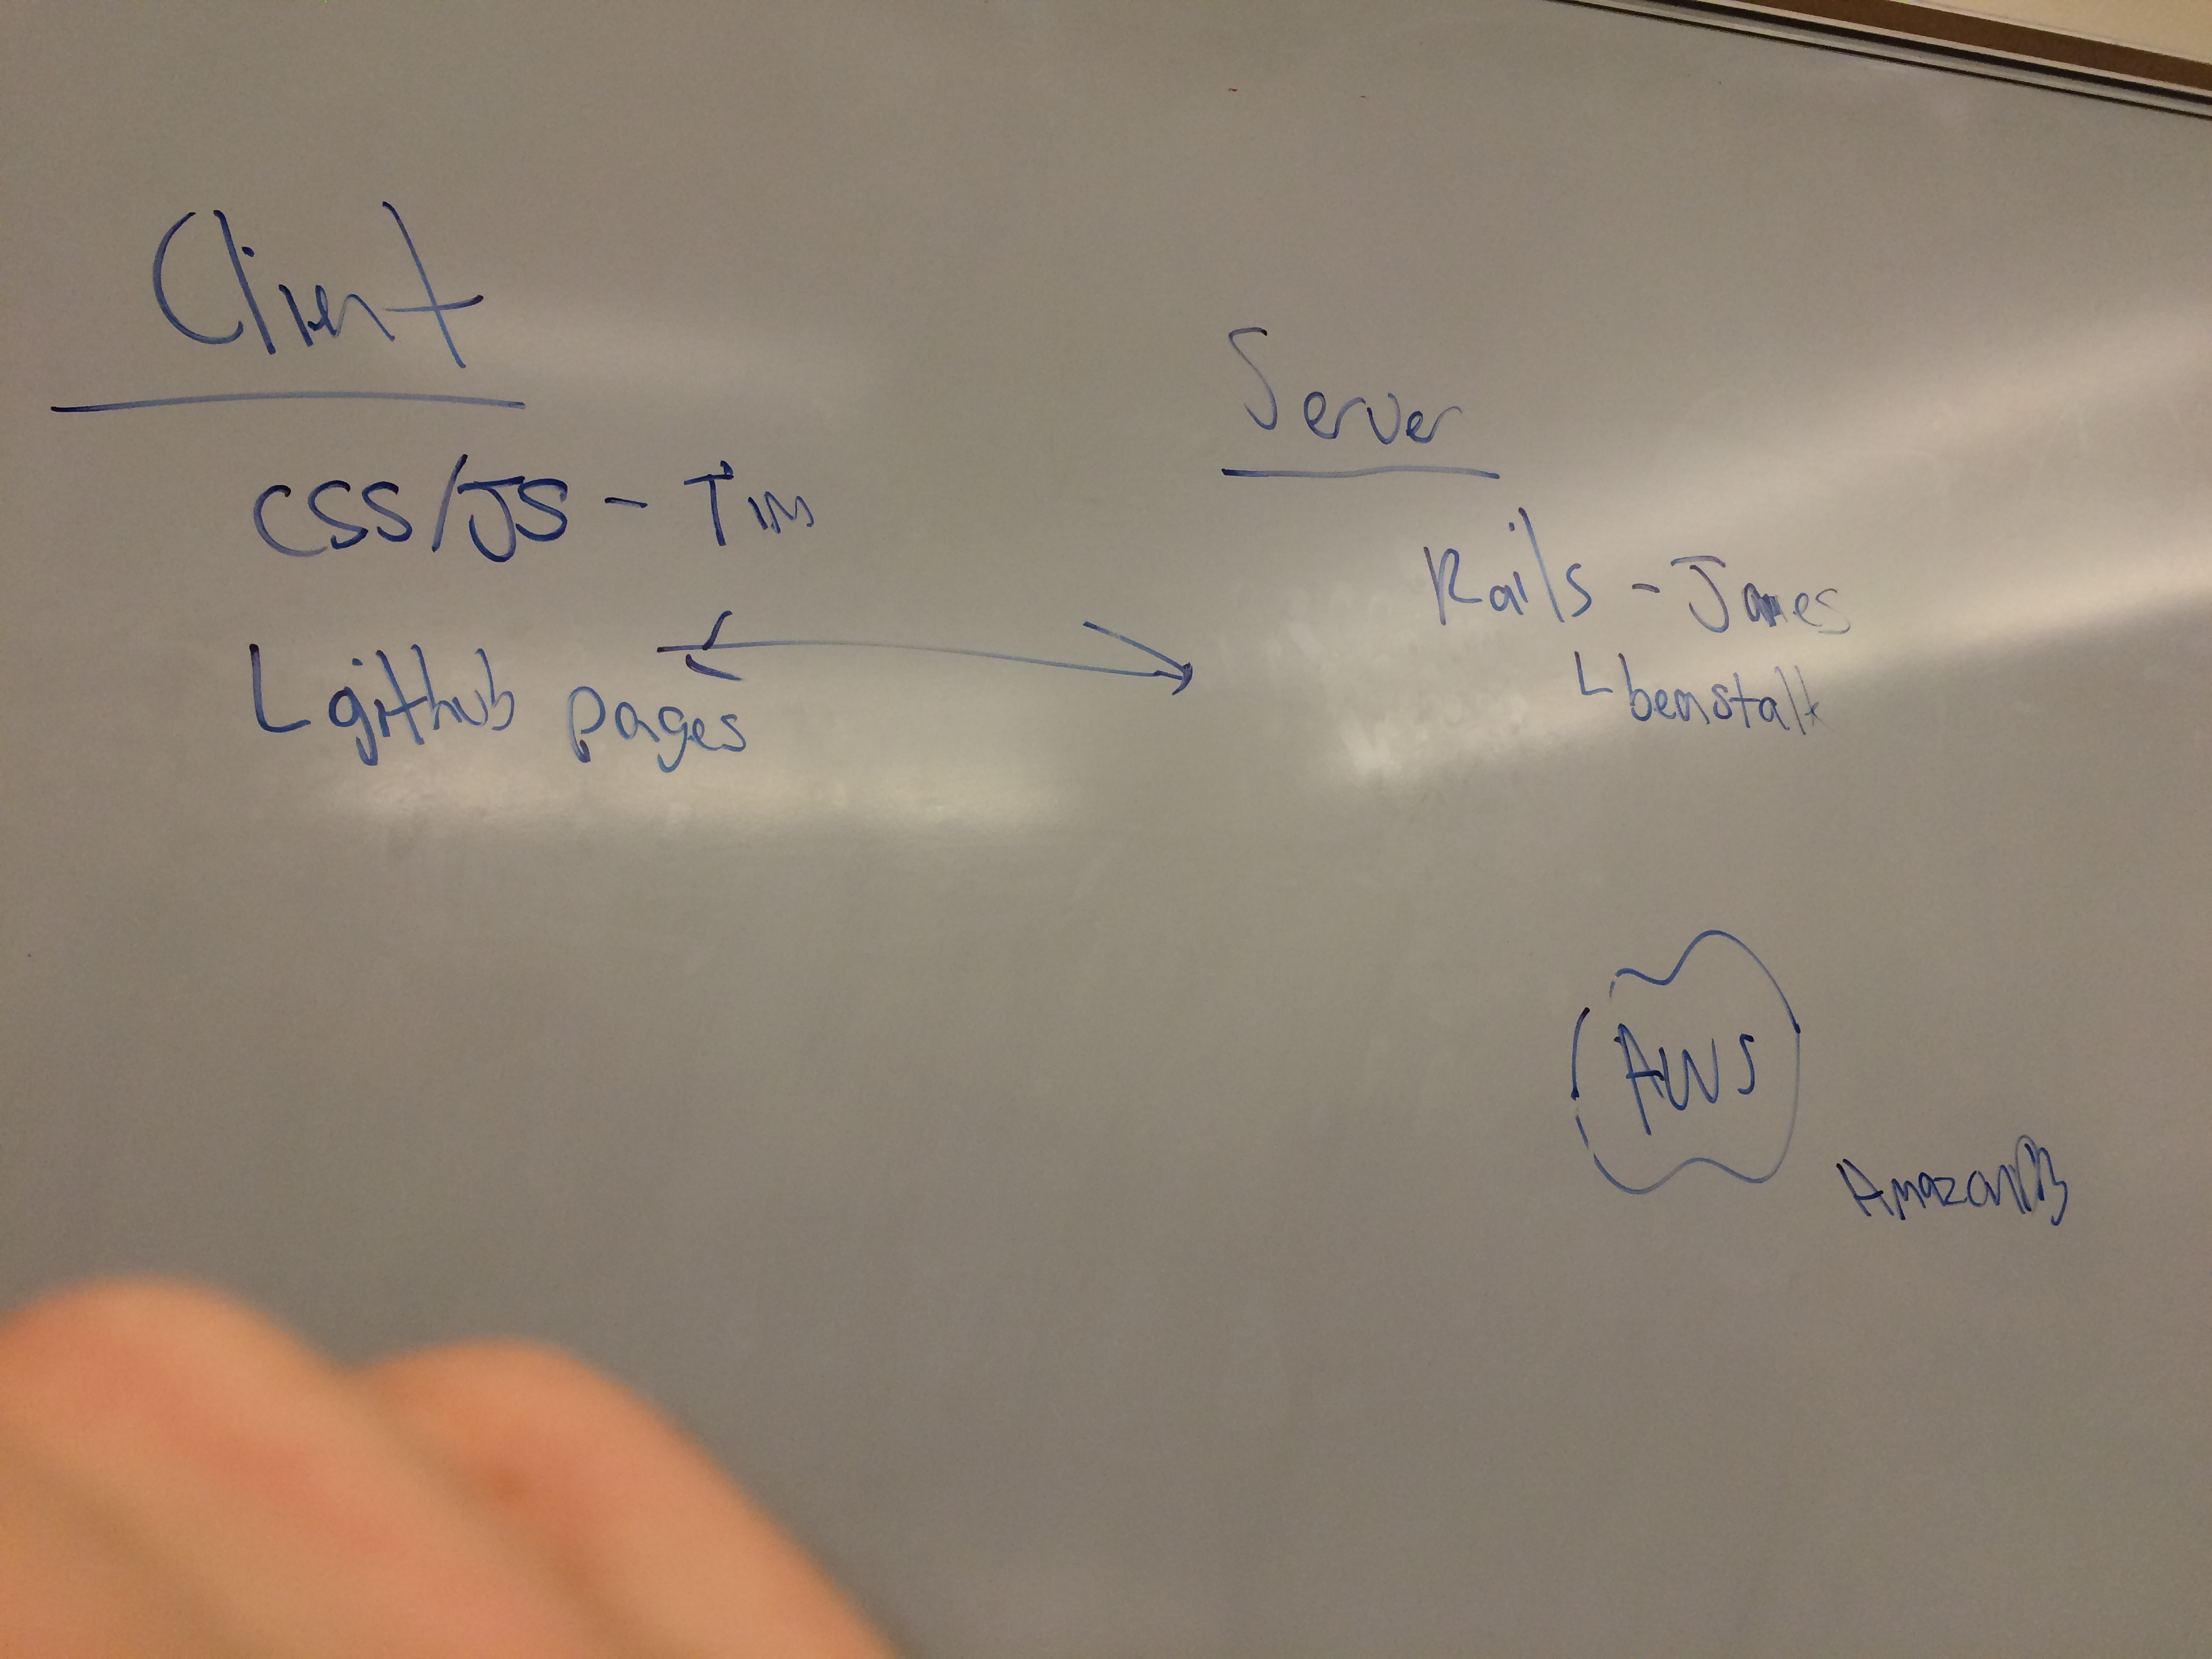 Client
CSS/JS - Tim
github pages
Server
Rails - James
benstalk
AWS
AmazonDB